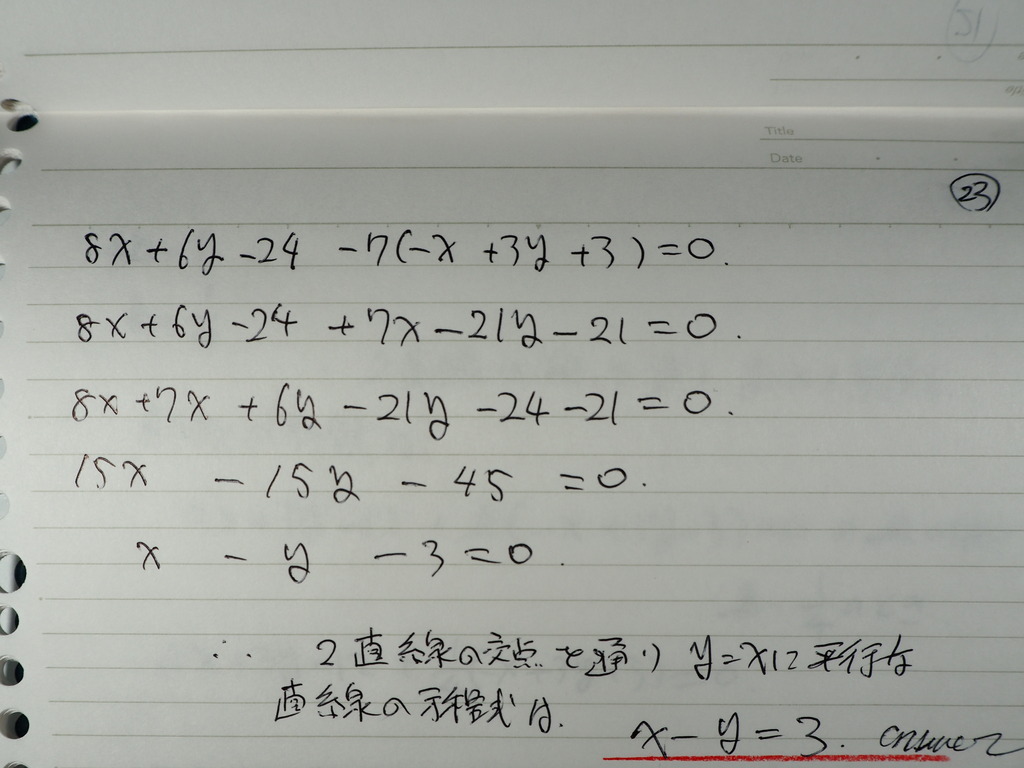 Title
Date
23
8x+6y-24 -7(-x +3y+3)=0.
8x+6y-24 +7x-21y-21=0.
8x+7x +6y-21y-24-21=0.
15x -15y -45 =0.
x - y -3=0.
∴ 2直線の交点を通り y=xに平行な
直線の方程式は.
x-y=3. answer